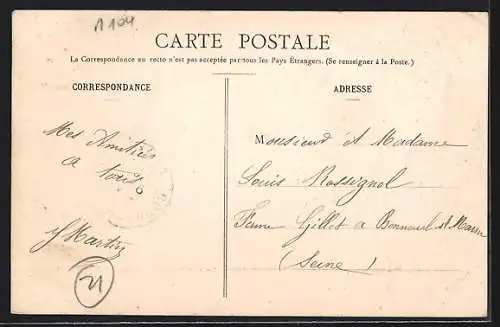 1104
CARTE POSTALE
La Correspondance au recto n'est pas acceptée par tous les Pays Étrangers. (Se renseigner à la Poste.)
CORRESPONDANCE
ADRESSE
Mes Amitiés
a tous
Y Martin
21
Monsieur et Madame
Louis Rossignol
Ferme Gillet a Bonneuil s/ Marne
(Seine)